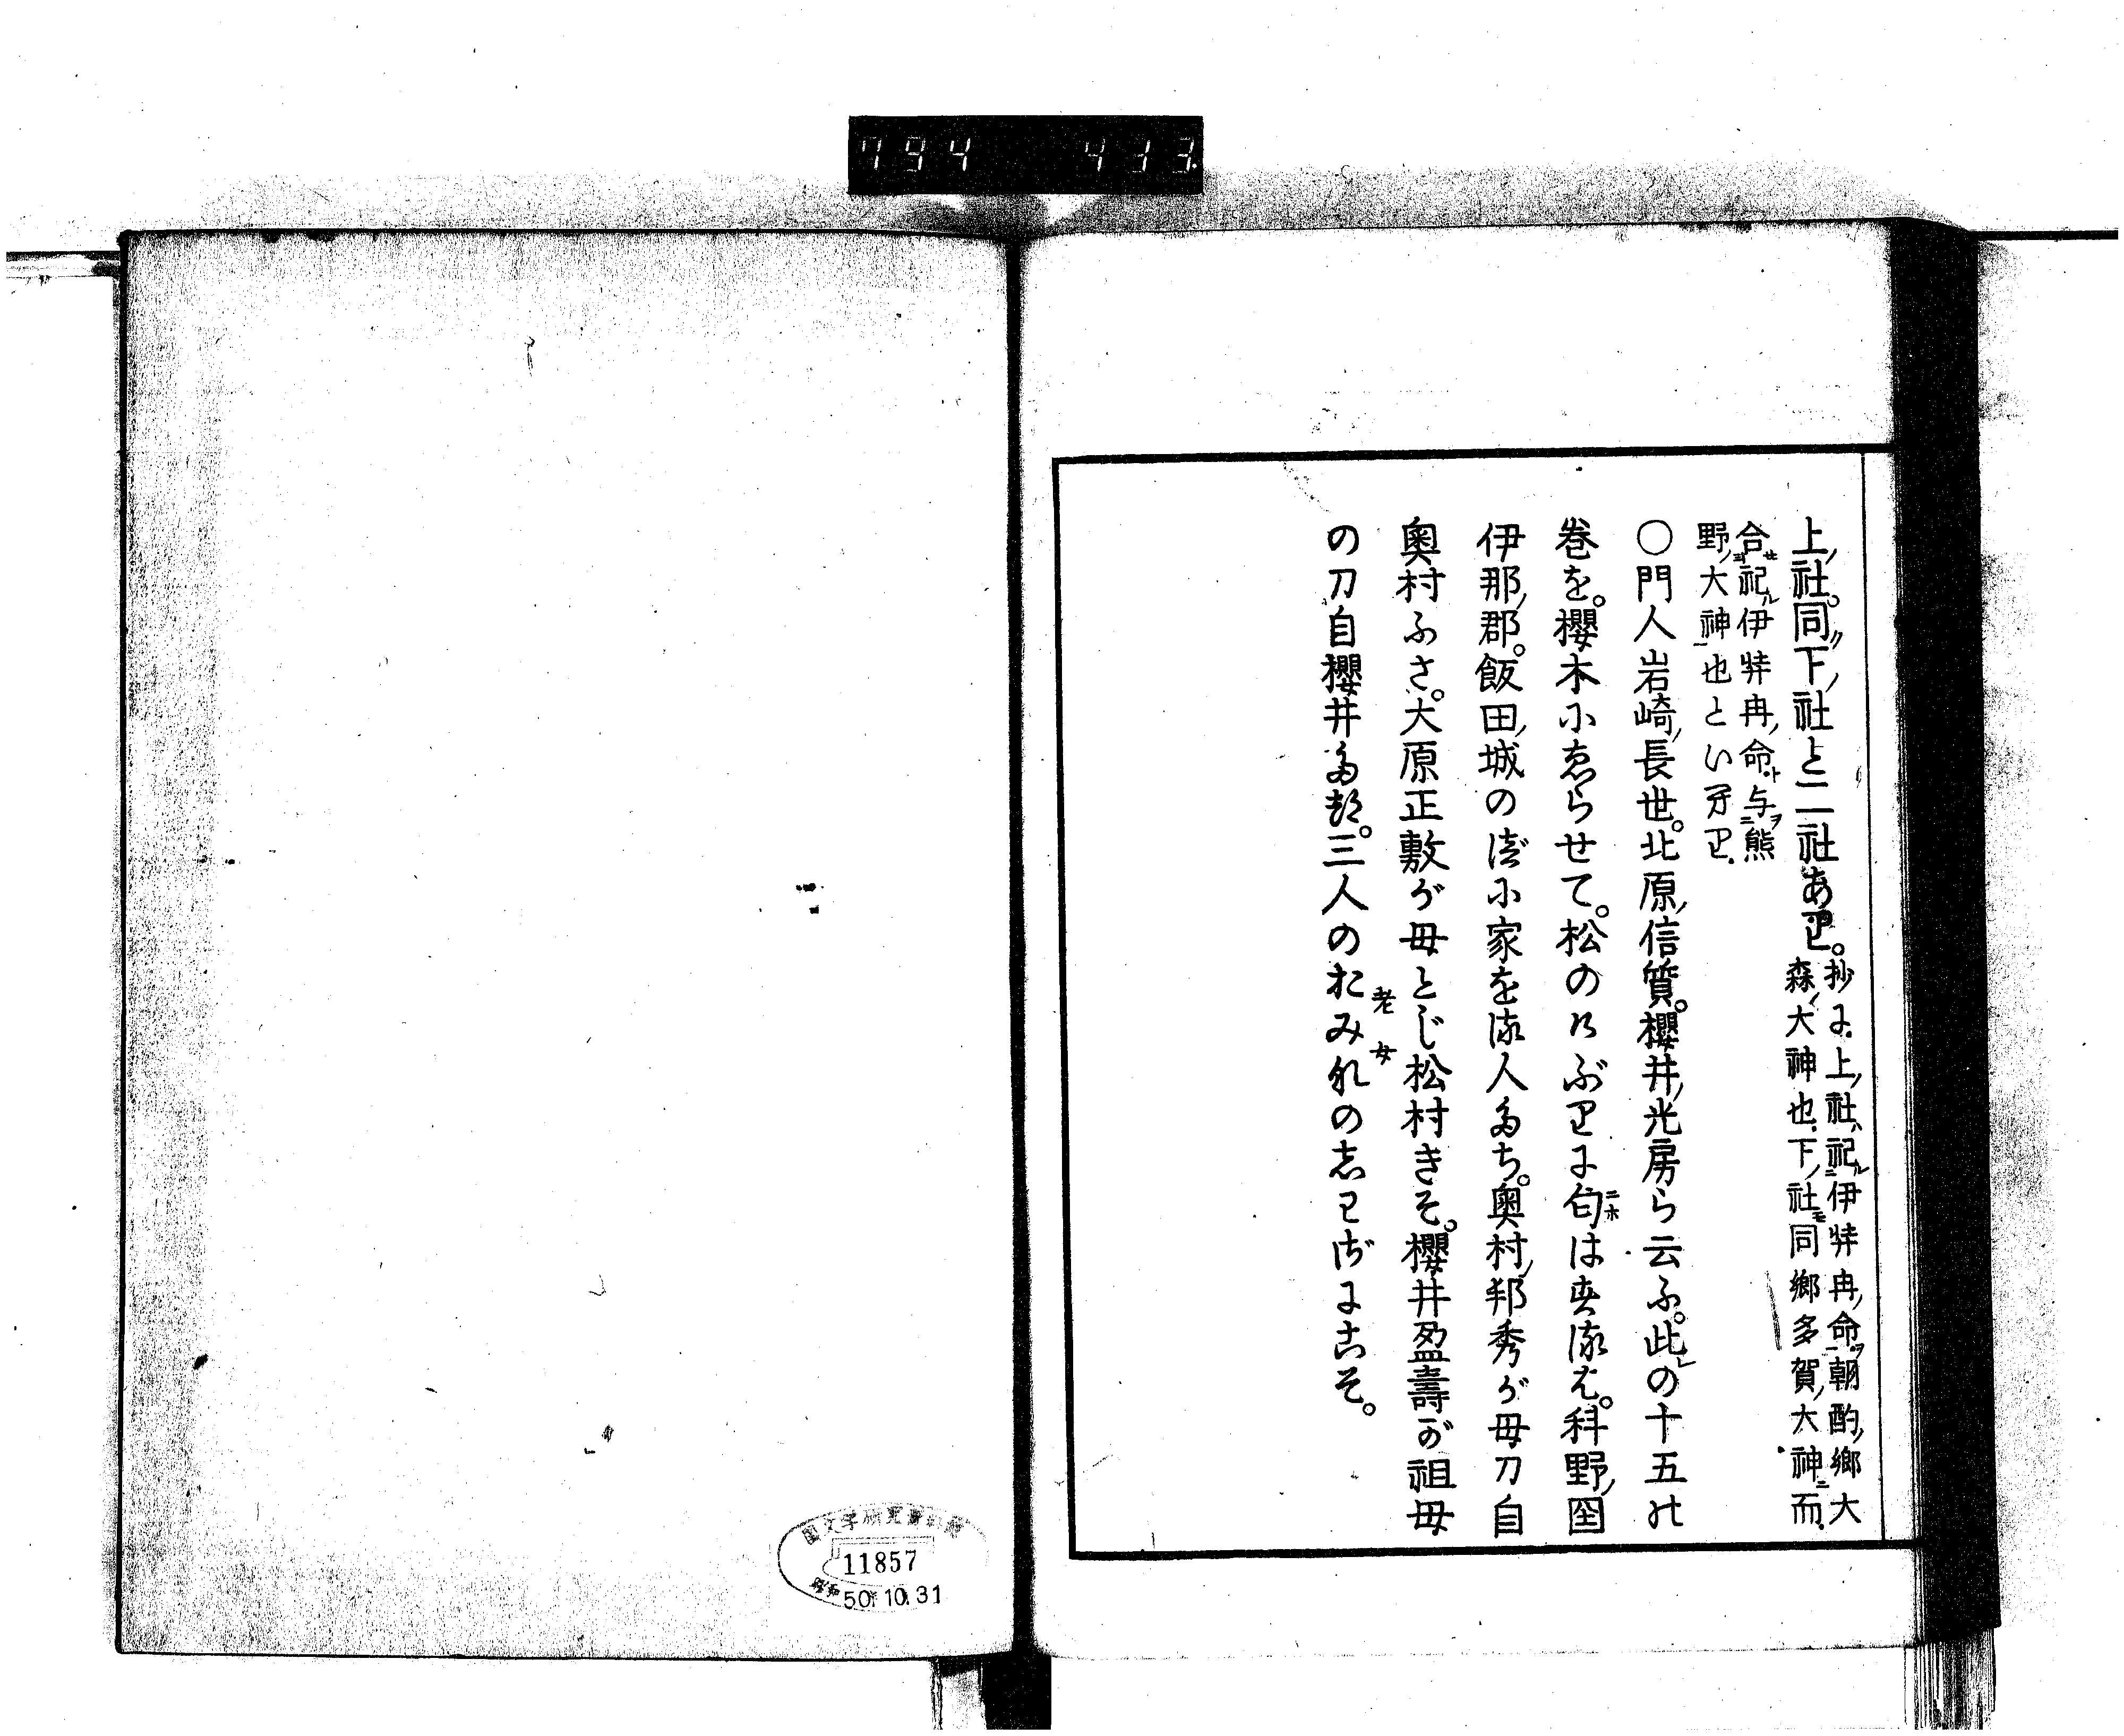 794 413
上ノ社。同ジ下ノ社と二社あり。
抄に。上ノ社ハ祀ル伊弉冉ノ命ヲ朝酌ノ郷大
森ノ大神也。下ノ社モ同郷多賀ノ大神ニ而。
合セ祀ル伊弉冉ノ命ト与ヲ熊
野ノ大神也といへり。
〇門人岩崎ノ長世。北原ノ信質。櫻井ノ光房ら云ふ。此レの十五の
巻を。櫻木にゑらせて。松のけぶりに匂はせるは。科野ノ国
ニホ
伊那ノ郡。飯田ノ城の辺に家をる人たち。奥村ノ邦秀が母刀自
奥村ふさ。大原正敷が母とじ松村きそ。櫻井盈壽が祖母
の刀自櫻井たき。三人のおみなのしわざにこそ。
老女
国文学研究資料館
11857
昭和
50.10.31